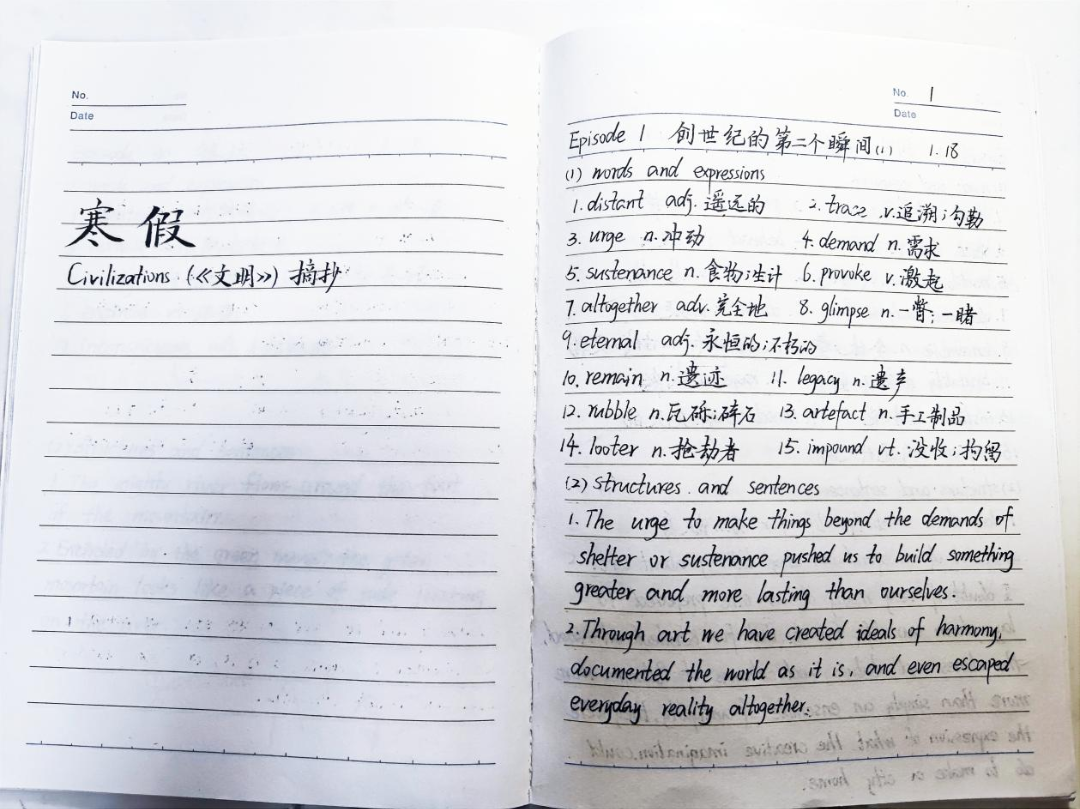 No.
Date
寒假
Civilizations (《文明》) 摘抄
No. 1
Date
Episode 1 创世纪的第二个瞬间(1) 1.18
(1) words and expressions
1. distant adj. 遥远的 2. trace v.追溯;勾勒
3. urge n.冲动 4. demand n.需求
5. sustenance n.食物;生计 6. provoke v.激起
7. altogether adv.完全地 8. glimpse n.一瞥;一睹
9. eternal adj.永恒的;不朽的
10. remain n.遗迹 11. legacy n.遗产
12. rubble n.瓦砾;碎石 13. artefact n.手工制品
14. looter n.抢劫者 15. impound vt.没收;拘留
(2) structures and sentences
1. The urge to make things beyond the demands of
shelter or sustenance pushed us to build something
greater and more lasting than ourselves.
2. Through art we have created ideals of harmony,
documented the world as it is, and even escaped
everyday reality altogether.